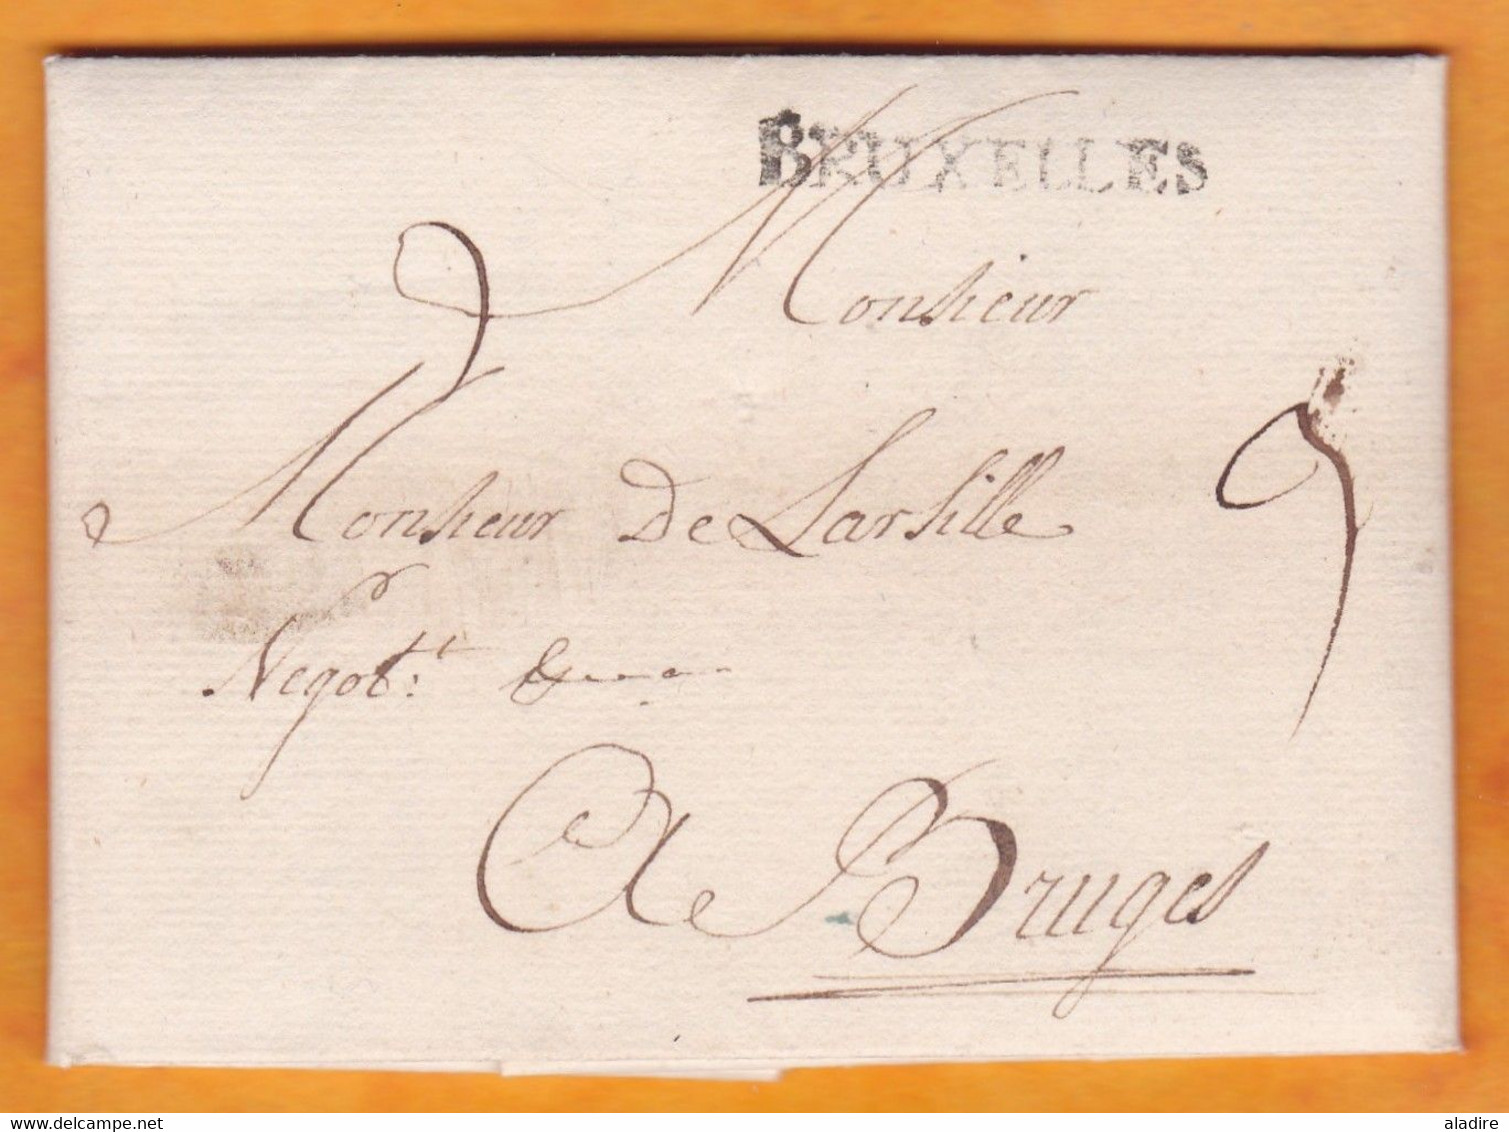 BRUXELLES
Monsieur
Monsieur De Larsille
Negot.t &
A Bruges
www.delcampe.net
aladire